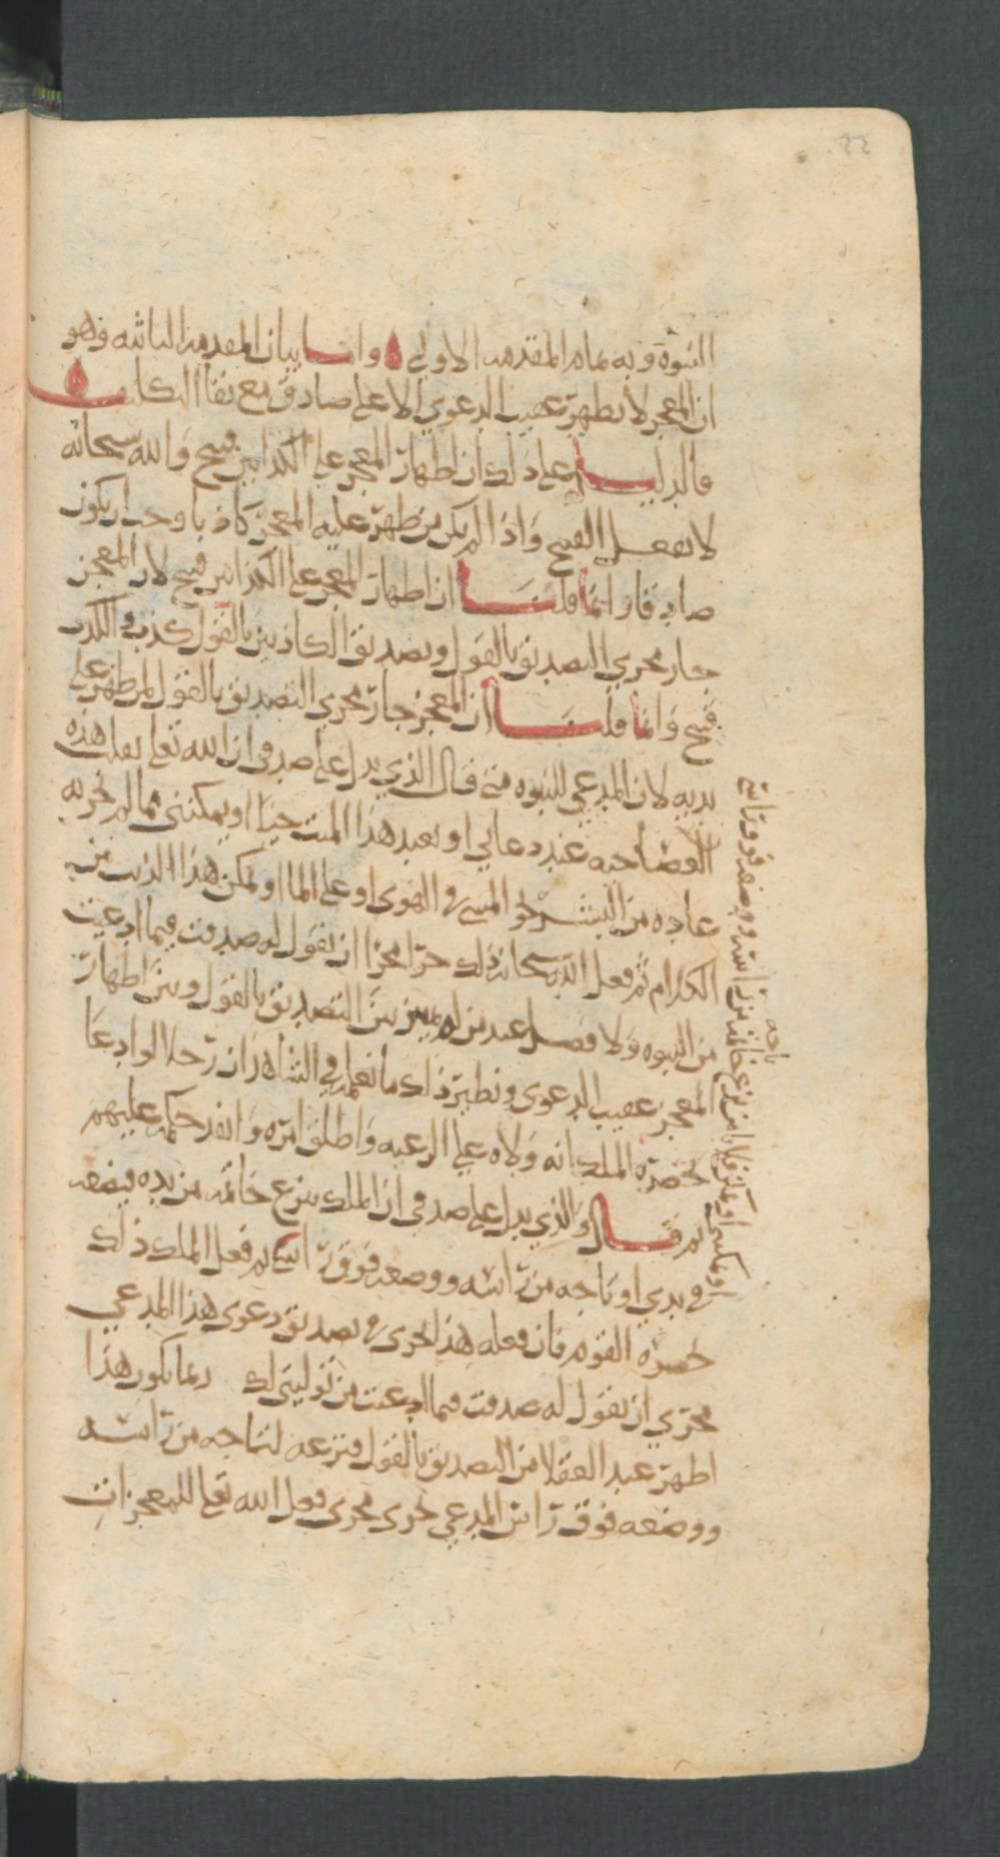 النبوة وبه تمام المقدمه الاولى واما بيان المقدمه الثانيه وهو
ان المعجز لا يظهر عقيب الدعوى الا على صادق مع بقا التكليف
فالدليل على ذلك ان اظهار المعجز على الكذابين قبيح والله سبحانه
لا يفعل القبيح واذا لم يكن من ظهر عليه المعجز كاذبا وجب ان يكون
صادقا وانما قلنا ان اظهار المعجز على الكذابين قبيح لان المعجز
جار مجرى التصديق بالقول وتصديق الكاذبين بالقول كذب والكذب
قبيح وانما قلنا ان المعجز جار مجرى التصديق بالقول لمن ظهر على
يديه لان المدعي للنبوه متى قال الذي يدل على صدقي ان الله تعالى يقلب هذه
العصا حيه عند دعائي او يعيد هذا الميت حيا او يمكنني مما لم تجر به
عاده من البشر نحو المشي في الهوى او على الما او يمكن هذا الذيب من
الكلام ثم فعل الله سبحانه ذلك جرا مجرا ان يقول له صدقت فيما ادعيت
من النبوه ولا فصل عند من له تمييز بين التصديق بالقول وبين اظهار
المعجز عقيب الدعوى ونظير ذلك ما نعلمه في الشاهد ان رجلا لو ادعا
بحضرة الملك انه ولاه على الرعيه واطلق امره وانفذ حكمه عليهم
ثم قال والذي يدل على صدقي ان الملك ينزع خاتمه من يده فيضعه
في يدي او تاجه من راسه ووضعه فوق راسي ثم فعل الملك ذلك
بحضرة القوم فان فعله هذا يجري في تصديق دعوى هذا المدعي
مجرى ان يقول له صدقت فيما ادعيت من توليتي لك ربما يكون هذا
اظهر عند العقلا من التصديق بالقول فنزعه لتاجه من راسه
ووضعه فوق راس المدعي يجري مجرى فعل الله تعالى للمعجزات
تاجه
من راسه ووضعه فوق راسي